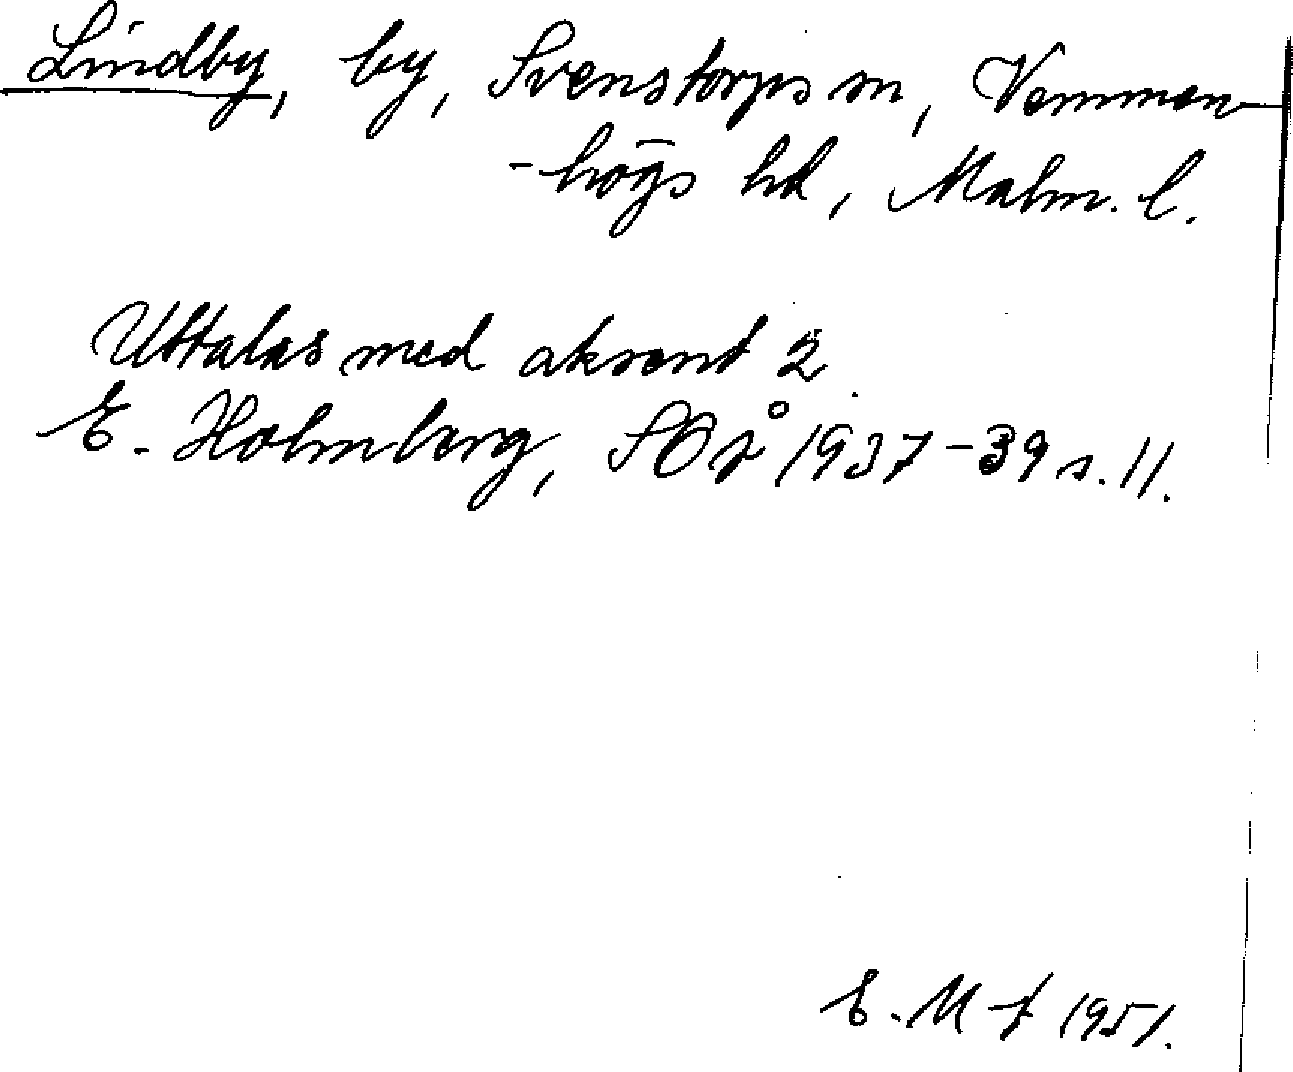 Lindby, by, Svenstorps sn, Vemmen-
-högs hd, Malm. l.
Uttalas med aksent 2.
E. Holmberg, SOÅ 1937-39 s. 11.
E. M-f 1951.